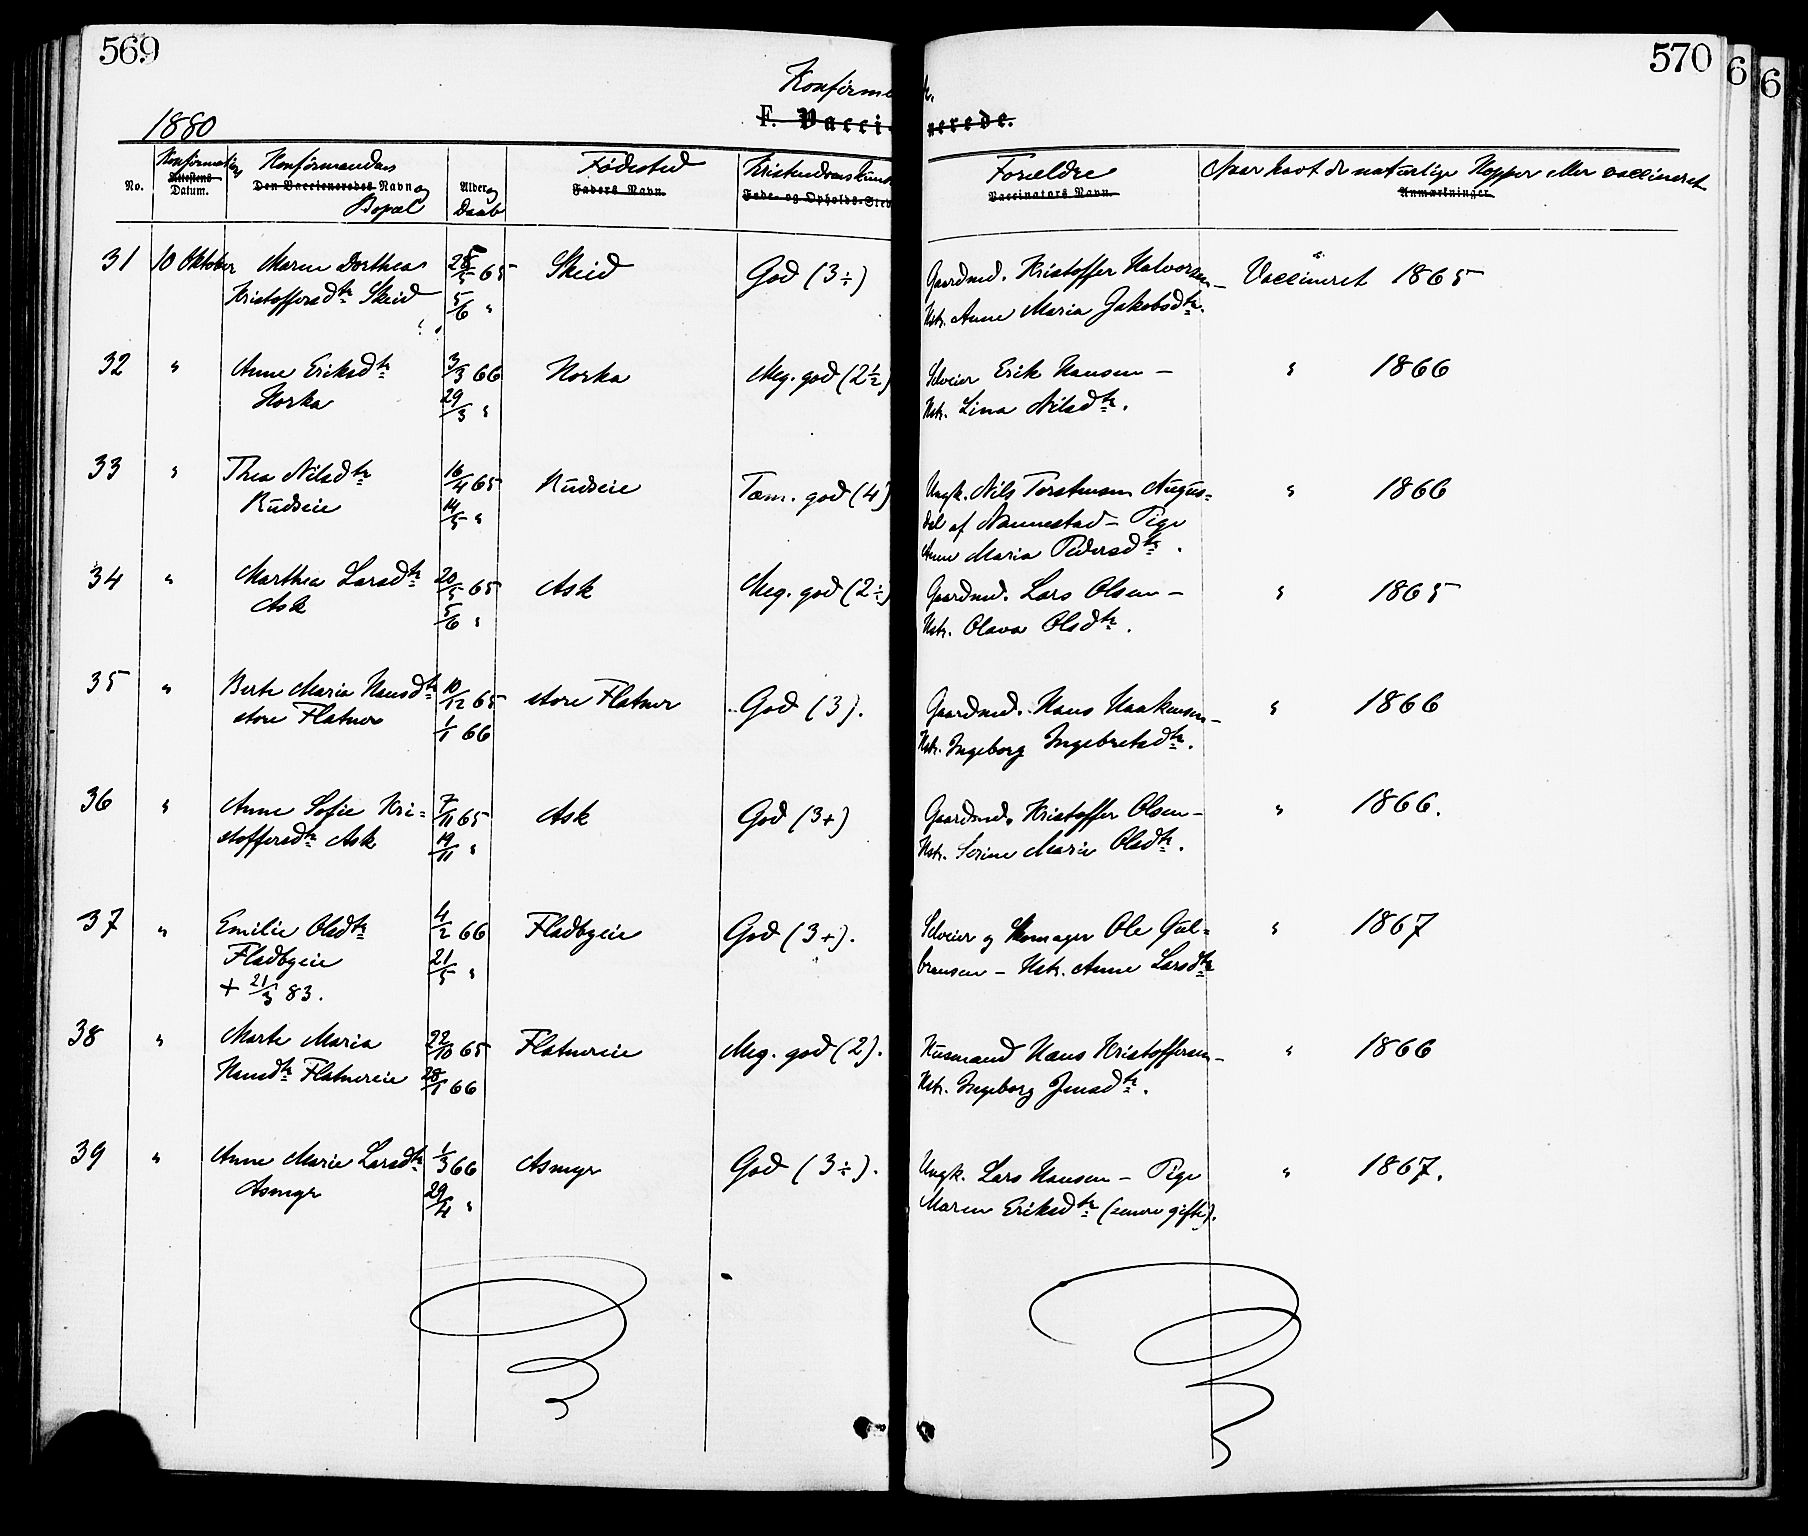 569
Konfirme
F. Vacci-
1880
No.
Konfirmations
Attestens
Datum.
Konfirmandens
Den Vaccineredes Navn og
Bopæl
Alder og
Daab
Fødested
Faders Navn.
Kristendomskunds
Føde- og Opholds-Sted
31 10 Oktober Maren Dorthea 25/5 65 Skeid God (3÷)
Kristoffersdtr Skeid 5/6 "
32 " Anne Eriksdtr 3/3 66 Horka Meg. god (2½)
Horka 29/3 "
33 " Thea Nilsdtr 16/4 65 Rudseie Tem. god (4)
Rudseie 14/5 "
34 " Marthea Larsdtr 20/5 65 Ask Meg. god (2÷)
Ask 5/6 "
35 " Berte Maria Hansdtr 10/12 65 store Flatner God (3).
store Flatner 1/1 66
36 " Anne Sofie Kri= 7/11 65 Ask God (3+)
stoffersdtr Ask 19/11 "
37 " Emilie Olsdtr 4/2 66 Fladbyeie God (3+).
Fladbyeie 21/5 "
+ 21/3 83.
38 " Marte Maria 22/10 65 Flatnereie Meg. god (2).
Hansdtr Flatnereie 28/1 66
39 " Anne Marie Larsdtr 1/3 66 Asmyr God (3÷).
Asmyr 29/4 "
570
6
6
r.
nerede.
Forældre
Vaccinators Navn.
Naar havt de naturlige Kopper eller vaccineret
Anmærkninger.
Gaardmd. Kristoffer Halvorsen – Vaccineret 1865
Hstr. Anne Maria Jakobsdtr.
Selveier Erik Hansen – " 1866
Hstr. Lina Nilsdtr.
Ungk. Nils Torstensen Augus= " 1866
dal af Nannestad – Pige
Anne Maria Pedersdtr.
Gaardmd. Lars Olsen – " 1865
Hstr. Olava Olsdtr.
Gaardmd. Hans Haakensen – " 1866
Hstr. Ingeborg Ingebretsdtr.
Gaardmd. Kristoffer Olsen – " 1866.
Hstr. Serine Marie Olsdtr.
Selveier og Skomager Ole Gul= " 1867
bransen – Hstr. Anne Larsdtr
Husmand Hans Kristoffersen – " 1866
Hstr. Ingeborg Jensdtr.
Ungk. Lars Hansen – Pige " 1867.
Maren Eriksdtr (senere gifte).